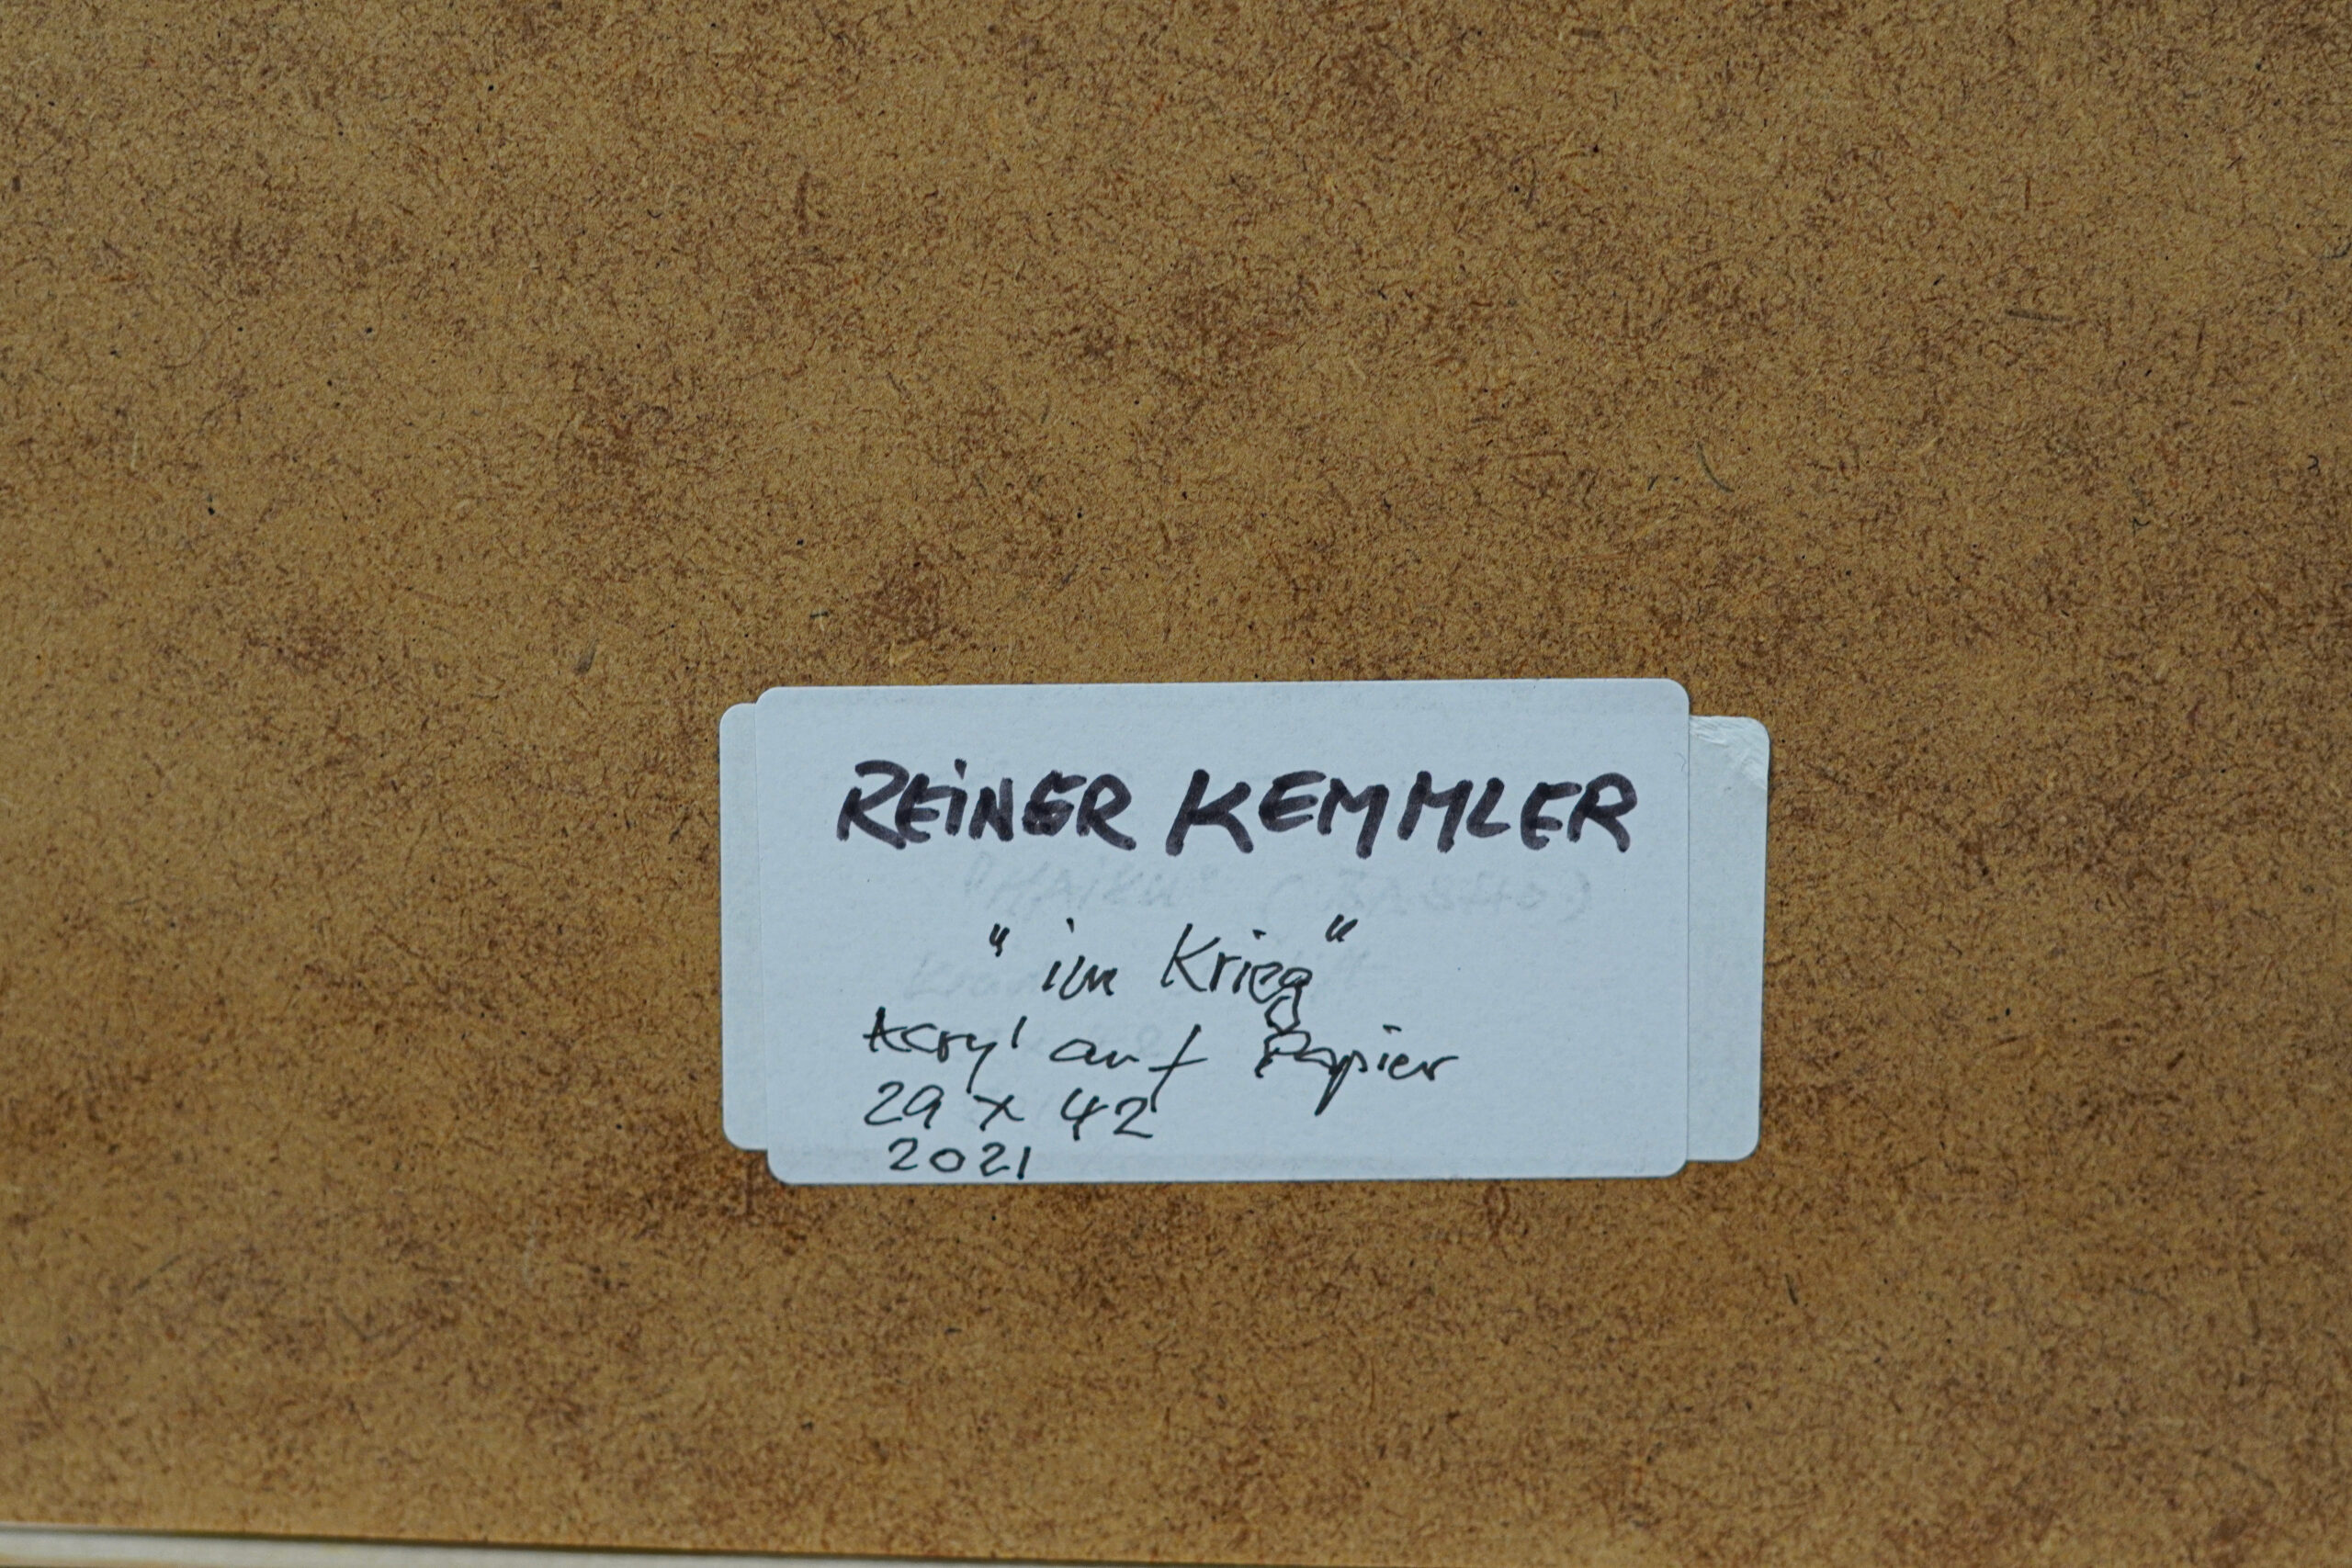 REiNER KEMMLER
"HAiKU" (BASHO)
"im Krieg"
Acryl auf Papier
29 x 42
2021